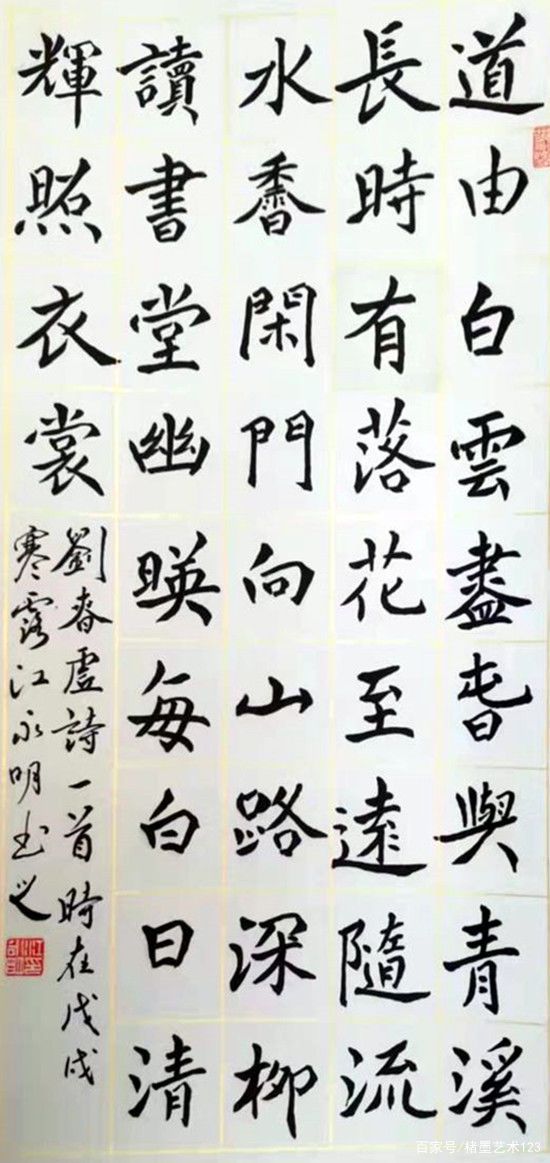 道由白雲盡旾與青溪
長時有落花至遠隨流
水香閑門向山路深柳
讀書堂幽暎每白日清
輝照衣裳
劉春虛詩一首時在戊戌
寒露江永明书之
百家号/楮墨艺术123